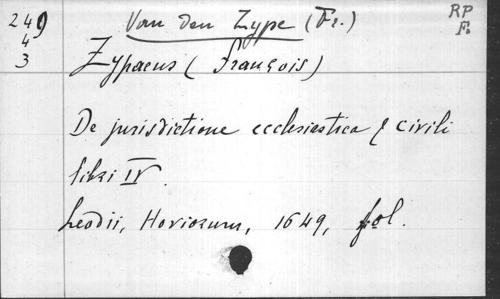 249 Van den Zype (Fr.) RP
4 F.
3 Zypaeus (François)
De jurisdictione ecclesiastica & civili
libri IV.
Leodii, Hoviorum, 1649, fol.